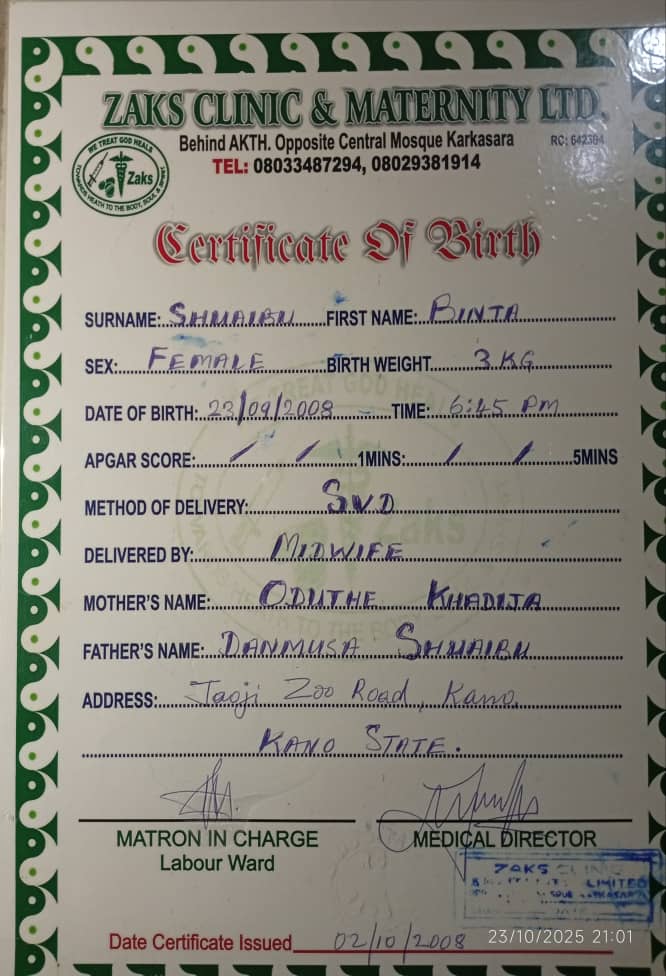 ZAKS CLINIC & MATERNITY LTD.
Behind AKTH. Opposite Central Mosque Karkasara
RC: 642364
TEL: 08033487294, 08029381914
WE TREAT GOD HEALS
Zaks
TOWARDS HEATH TO THE BODY, SOUL &
Certificate Of Birth
SURNAME: SHUAIBU FIRST NAME: BINTA
SEX: FEMALE BIRTH WEIGHT 3 KG
DATE OF BIRTH: 23/09/2008 TIME: 6:45 PM
APGAR SCORE: / / 1MINS: / / 5MINS
METHOD OF DELIVERY: SVD
DELIVERED BY: MIDWIFE
MOTHER'S NAME: ODUTHE KHADIJA
FATHER'S NAME: DANMUSA SHUAIBU
ADDRESS: Taoji Zoo Road, Kano.
KANO STATE.
MATRON IN CHARGE MEDICAL DIRECTOR
Labour Ward
ZAKS CLINIC
LIMITED
Date Certificate Issued 02/10/2008
23/10/2025 21:01